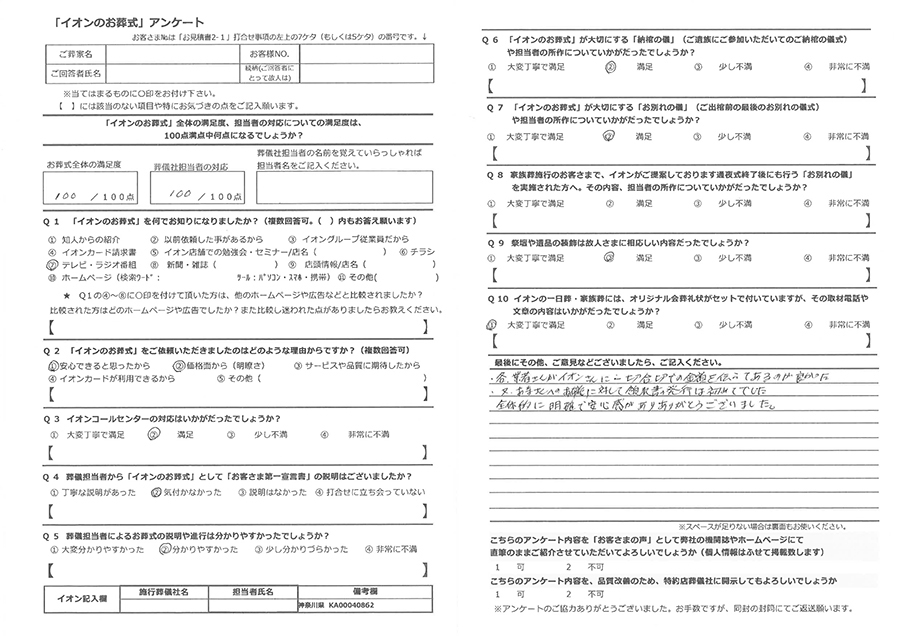 「イオンのお葬式」アンケート
お客さまNoは「お見積書2-1」打合せ事項の左上の7ケタ（もしくは5ケタ）の番号です。↓
ご葬家名
お客様NO.
ご回答者氏名
続柄(ご回答者にとって故人は)
※当てはまるものに○印をお付け下さい。
【　】には該当のない項目や特にお気づきの点をご記入願います。
「イオンのお葬式」全体の満足度、担当者の対応についての満足度は、
100点満点中何点になるでしょうか？
お葬式全体の満足度
葬儀社担当者の対応
葬儀社担当者の名前を覚えていらっしゃれば
担当者名をご記入ください。
100 ／100点
100 ／100点
Q 1　「イオンのお葬式」を何でお知りになりましたか？（複数回答可。（　）内もお答え願います）
① 知人からの紹介　② 以前依頼した事があるから　③ イオングループ従業員だから
④ イオンカード請求書　⑤ イオン店舗での勉強会・セミナー/店名（　）　⑥ チラシ
⑦ テレビ・ラジオ番組　⑧ 新聞・雑誌（　）　⑨ 店頭情報/店名（　）
⑩ ホームページ（検索ﾜｰﾄﾞ：　ﾂｰﾙ：ﾊﾟｿｺﾝ・ｽﾏﾎ・携帯）　⑪ その他(　)
★ Q1の④～⑧に○印を付けて頂いた方は、他のホームページや広告などと比較されましたか？
比較された方はどのホームページや広告でしたか？また比較し迷われた点がありましたらお教えください。
【　】
Q 2　「イオンのお葬式」をご依頼いただきましたのはどのような理由からですか？（複数回答可）
①安心できると思ったから　②価格面から（明瞭さ）　③サービスや品質に期待したから
④イオンカードが利用できるから　⑤その他（　）
【　】
Q 3　イオンコールセンターの対応はいかがだったでしょうか？
① 大変丁寧で満足　② 満足　③ 少し不満　④ 非常に不満
【　】
Q 4　葬儀担当者から「イオンのお葬式」として「お客さま第一宣言書」の説明はございましたか？
① 丁寧な説明があった　②気付かなかった　③説明はなかった　④打合せに立ち会っていない
【　】
Q 5　葬儀担当者によるお葬式の説明や進行は分かりやすかったでしょうか？
①大変分かりやすかった　②分かりやすかった　③少し分かりづらかった　④ 非常に不満
【　】
イオン記入欄
施行葬儀社名
担当者氏名
備考欄
神奈川県 KA00040862
Q 6　「イオンのお葬式」が大切にする「納棺の儀」（ご遺族にご参加いただいてのご納棺の儀式）
や担当者の所作についていかがだったでしょうか？
① 大変丁寧で満足　② 満足　③ 少し不満　④ 非常に不満
【　】
Q 7　「イオンのお葬式」が大切にする「お別れの儀」（ご出棺前の最後のお別れの儀式）
や担当者の所作についていかがだったでしょうか？
① 大変丁寧で満足　② 満足　③ 少し不満　④ 非常に不満
【　】
Q 8　家族葬施行のお客さまで、イオンがご提案しております通夜式終了後にも行う「お別れの儀」
を実施された方へ。その内容、担当者の所作についていかがだったでしょうか？
① 大変丁寧で満足　② 満足　③ 少し不満　④ 非常に不満
【　】
Q 9　祭壇や遺品の装飾は故人さまに相応しい内容だったでしょうか？
① 大変丁寧で満足　② 満足　③ 少し不満　④ 非常に不満
【　】
Q 10　イオンの一日葬・家族葬には、オリジナル会葬礼状がセットで付いていますが、その取材電話や
文章の内容はいかがだったでしょうか？
① 大変丁寧で満足　② 満足　③ 少し不満　④ 非常に不満
【　】
最後にその他、ご意見などございましたら、ご記入ください。
・各、業者さんがイオンさんに
・又、お寺さんへのお礼に対して領収書の発行は初めてでした
全体的に明確で安心感がありありがとうございました。
※スペースが足りない場合は裏面もお使いください。
こちらのアンケート内容を「お客さまの声」として弊社の機関誌やホームページにて
直筆のままご紹介させていただいてよろしいでしょうか（個人情報はふせて掲載致します）
1　可　2　不可
こちらのアンケート内容を、品質改善のため、特約店葬儀社に開示してもよろしいでしょうか
1　可　2　不可
※アンケートのご協力ありがとうございました。お手数ですが、同封の封筒にてご返送願います。